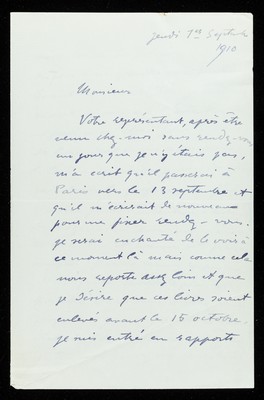 jeudi 1er Septembre
1910
Monsieur
Votre représentant, après être
venu chez-moi sans rendez-vous
un jour que je n'y étais pas,
m'a écrit qu'il passerait à
Paris vers le 13 septembre et
qu'il m'écrirait de nouveau
pour me fixer rendez-vous.
je serai enchanté de le voir à
ce moment là mais comme cela
nous reporte assez loin et que
je désire que ces livres soient
enlevés avant le 15 octobre.
je suis entré en rapports